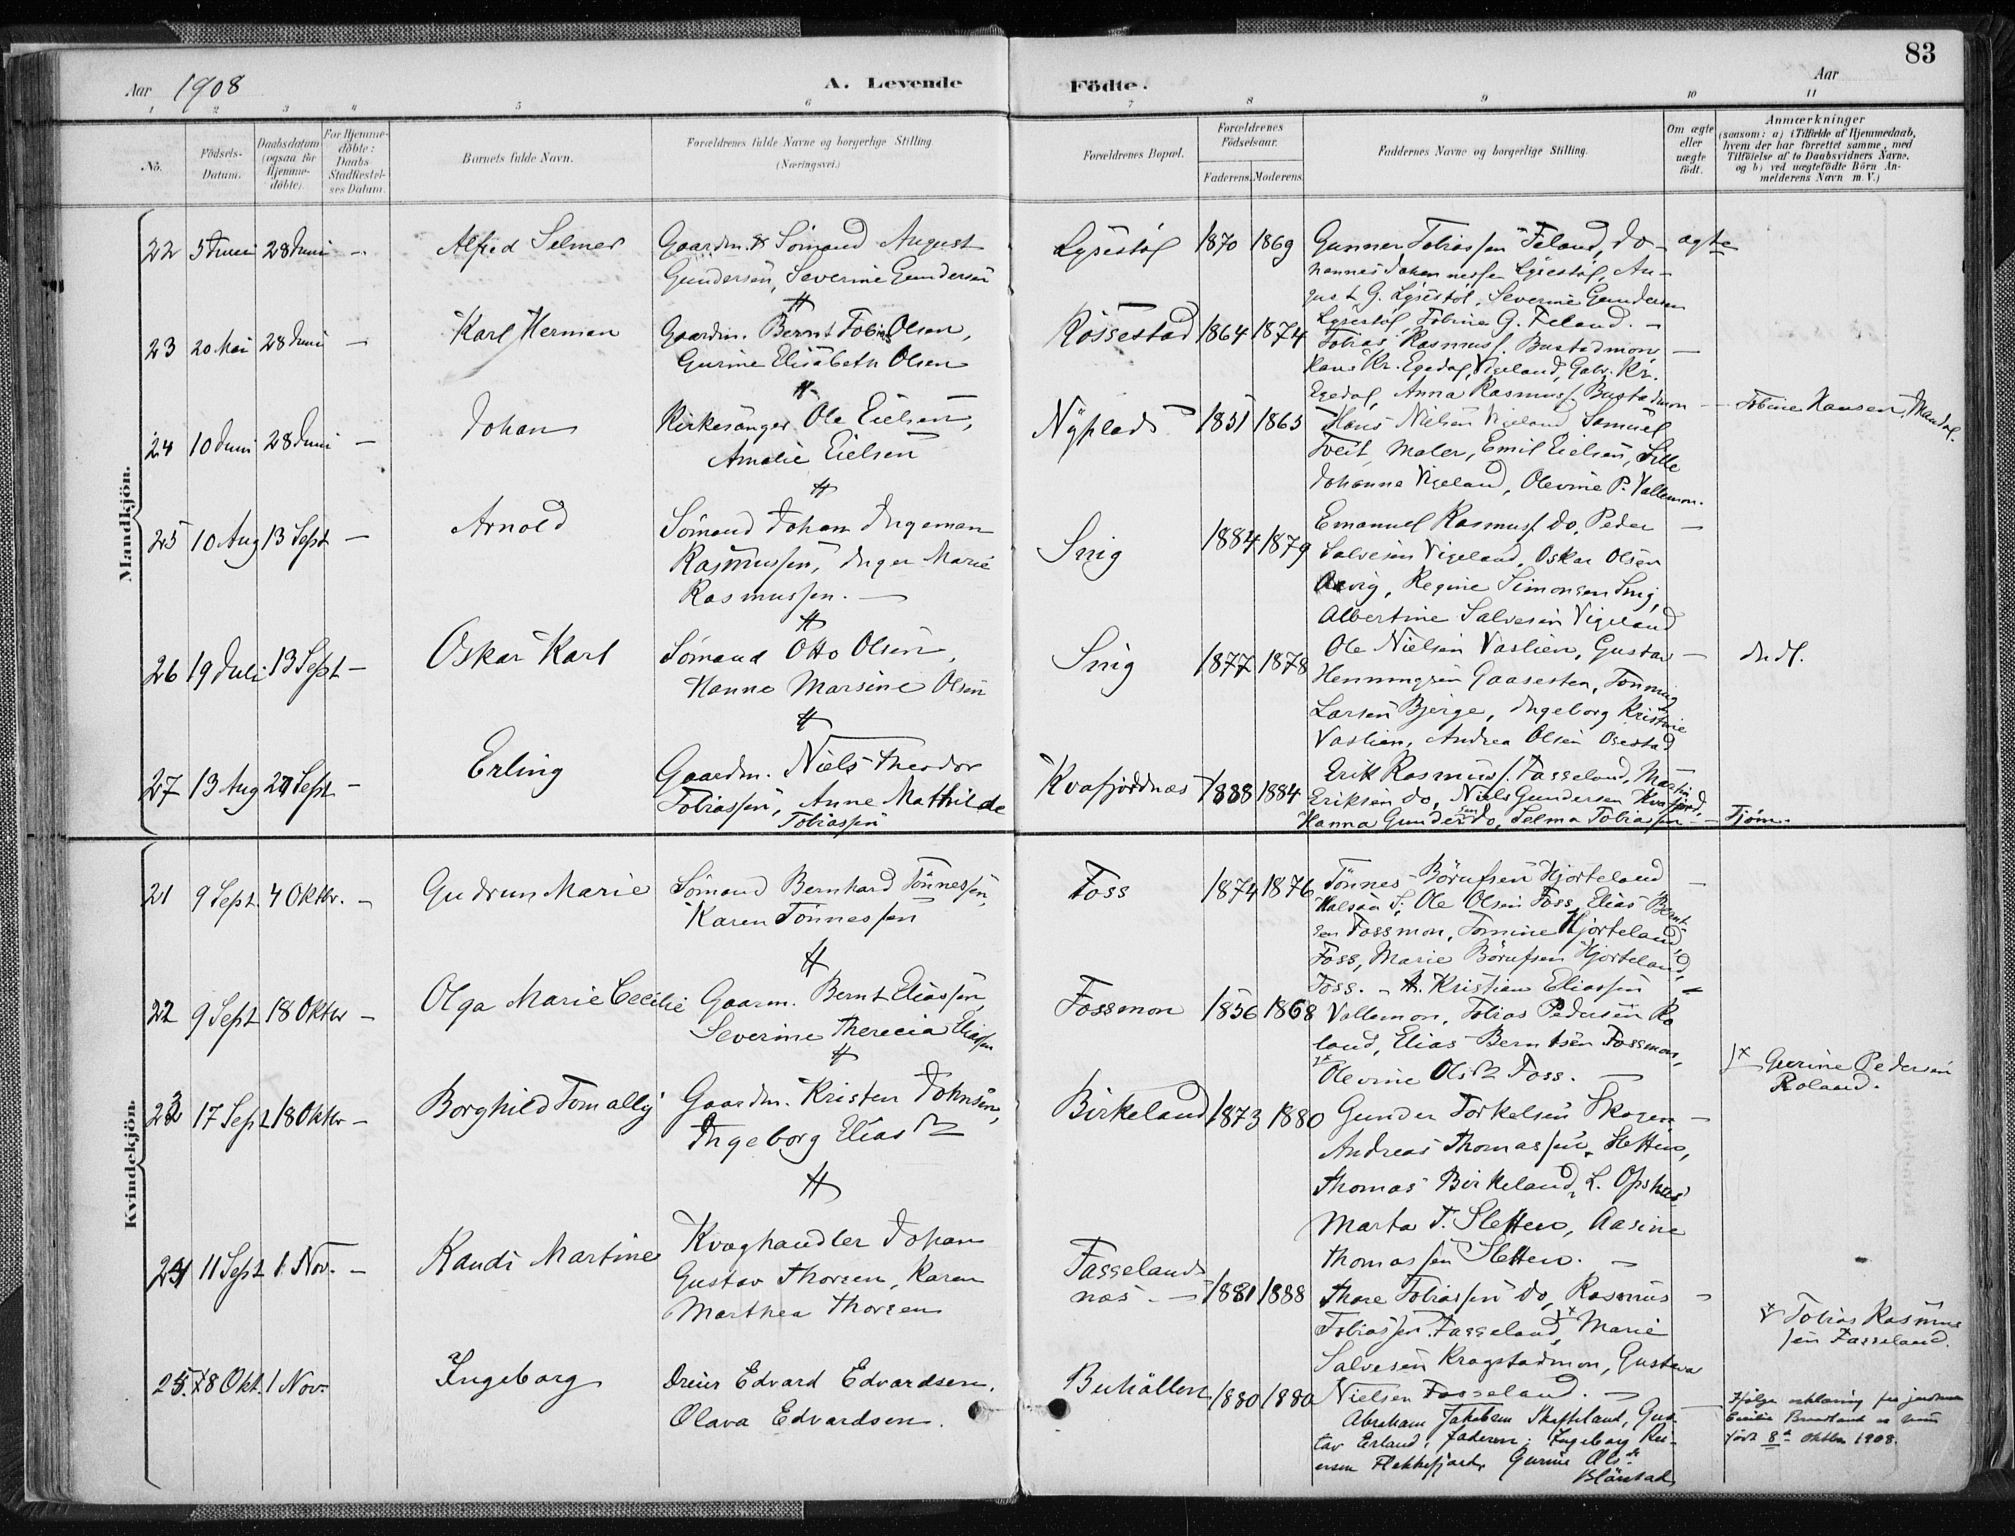 83
Aar 1908
A. Levende
Födte.
Aar
1 2 3 4 5 6 7 8 9 10 11
No.
Födsels-Datum.
Daabsdatum (ogsaa for Hjemme-döbte).
For Hjemme-döbte: Daabs-Stadfæstel-ses Datum.
Barnets fulde Navn.
Forældrenes fulde Navne og borgerlige Stilling.
(Næringsvei.)
Forældrenes Bopæl.
Forældrenes Födselsaar.
Faderens. Moderens.
Faddernes Navne og borgerlige Stilling.
Om ægte eller uægte födt.
Anmærkninger
(saasom: a) i Tilfælde af Hjemmedaab,
hvem der har forrettet samme, med
Tilföielse af to Daabsvidners Navne,
og b) ved uægtefödte Börn An-
melderens Navn m. V.)
Mandkjön.
22 5 Juni 28 Juni - Alfred Selmer
Gaardm. & Sömand August
Gundersen, Severine Gundersen
Lysestöl 1870 1869
Gunner Tobiassen Feland, Jo-
hannes Johannessen Lysestöl, Au-
gust G. Lysestöl, Severine Gundersen
Lysestöl, Tobine G. Feland. -
ægte
23 20 Mai 28 Juni - Karl Herman
Gaardm. Bernt Tobias Olsen,
Gurine Elisabeth Olsen
Rössestad 1864 1874
Tobias Rasmuss. Bustadmon
Hans Kr. Egedal, Vigeland, Gabr. Kr.
Egedal, Anna Rasmuss. Bustadmon
24 10 Juni 28 Juni - Johan
Kirkesanger Ole Eielsen,
Amalie Eielsen
Nyplads 1851 1865
Hans Nielsen Vigeland Samuel
Tveit, Maler, Emil Eielsen, Lille
Johanne Vigeland, Olevine P. Vallemon.
Tobine Hansen, Mandal.
25 10 Aug 13 Sept - Arnold
Sömand Johan Ingeman
Rasmussen, Inger Marie
Rasmussen. -
Snig 1884 1879
Emanuel Rasmuss. do, Peder
Salvesen Vigeland, Oskar Olsen
Aavig, Regine Simonsen Snig,
Albertine Salvesen Vigeland
26 19 Juli 13 Sept - Oskar Karl
Sömand Otto Olsen,
Hanne Marsine Olsen
Snig 1877 1878
Ole Nielsen Vaslien, Gustav
Henningsen Gaasesten, Tönnes
Larsen Bjerge, Ingeborg Kristine
Vaslien, Andrea Olsen Osestad
Indl.
27 13 Aug 27 Sept - Erling
Gaardm. Niels Theodor
Tobiassen, Anne Mathilde
Tobiassen
Kvafjordnæs 1888 1884
Erik Rasmuss. Fasseland, Martin
Eriksen do, Niels Gundersen Kvafjord,
Hanna Gundersen do, Selma Tobiassen - Fjöm.
Kvindekjön.
21 9 Sept. 4 Oktbr. - Gudrun Marie
Sömand Bernhard Tönnessen,
Karen Tönnessen
Foss 1874 1876
Tönnes Börufsen Hjorteland
Halsaa S; Ole Olsen Foss, Elias Bernt-
sen Fossmon, Tomine Hjorteland,
Foss, Marie Börufsen Hjorteland,
Foss. -
22 9 Sept 18 Oktbr - Olga Marie Cecilie
Gaarm. Bernt Eliassen,
Severine Therecia Eliassen
Fossmon 1856 1868
Kristian Eliassen
Vallemon, Tobias Pedersen Ro-
land, Elias Berntsen Fossmon,
Olevine Olsen Foss. -
Gurine Pedersen
Roland.
23 17 Sept 18 Oktbr - Borghild Tomally
Gaardm. Kristen Johnsen,
Ingeborg Eliasen
Birkeland 1873 1880
Gunder Torkelsen Skogen
Andreas Thomassen, Sletten,
Thomas Birkeland, L. Opshus
Marta T. Sletten, Aasine
Thomassen Sletten. -
24 11 Sept 1. Nov. - Randi Martine
Kvæghandler Johan
Gustav Thorsen, Karen
Marthea Thorsen
Fasselands
næs. - 1881 1888
Thore Tobiassen do, Rasmus
Tobiassen Fasseland, Marie
Salvesen Kragstadmon, Gustava
Nielsen Fasseland. -
Tobias Rasmus
sen Fasseland.
25. 8 Okt. 1 Nov. Ingeborg
Dreier Edvard Edvardsen.
Olava Edvardsen.
Buhölten 1880 1880
Abraham Jakobsen Skofteland, Gus-
tav Erland, faderen, Ingeborg Rei-
ersen Flekkefjord, Gurine Ols.
Blörstad
Ifølge erklæring fra jordmor
Cecilie
født 8de Oktbr 1908.